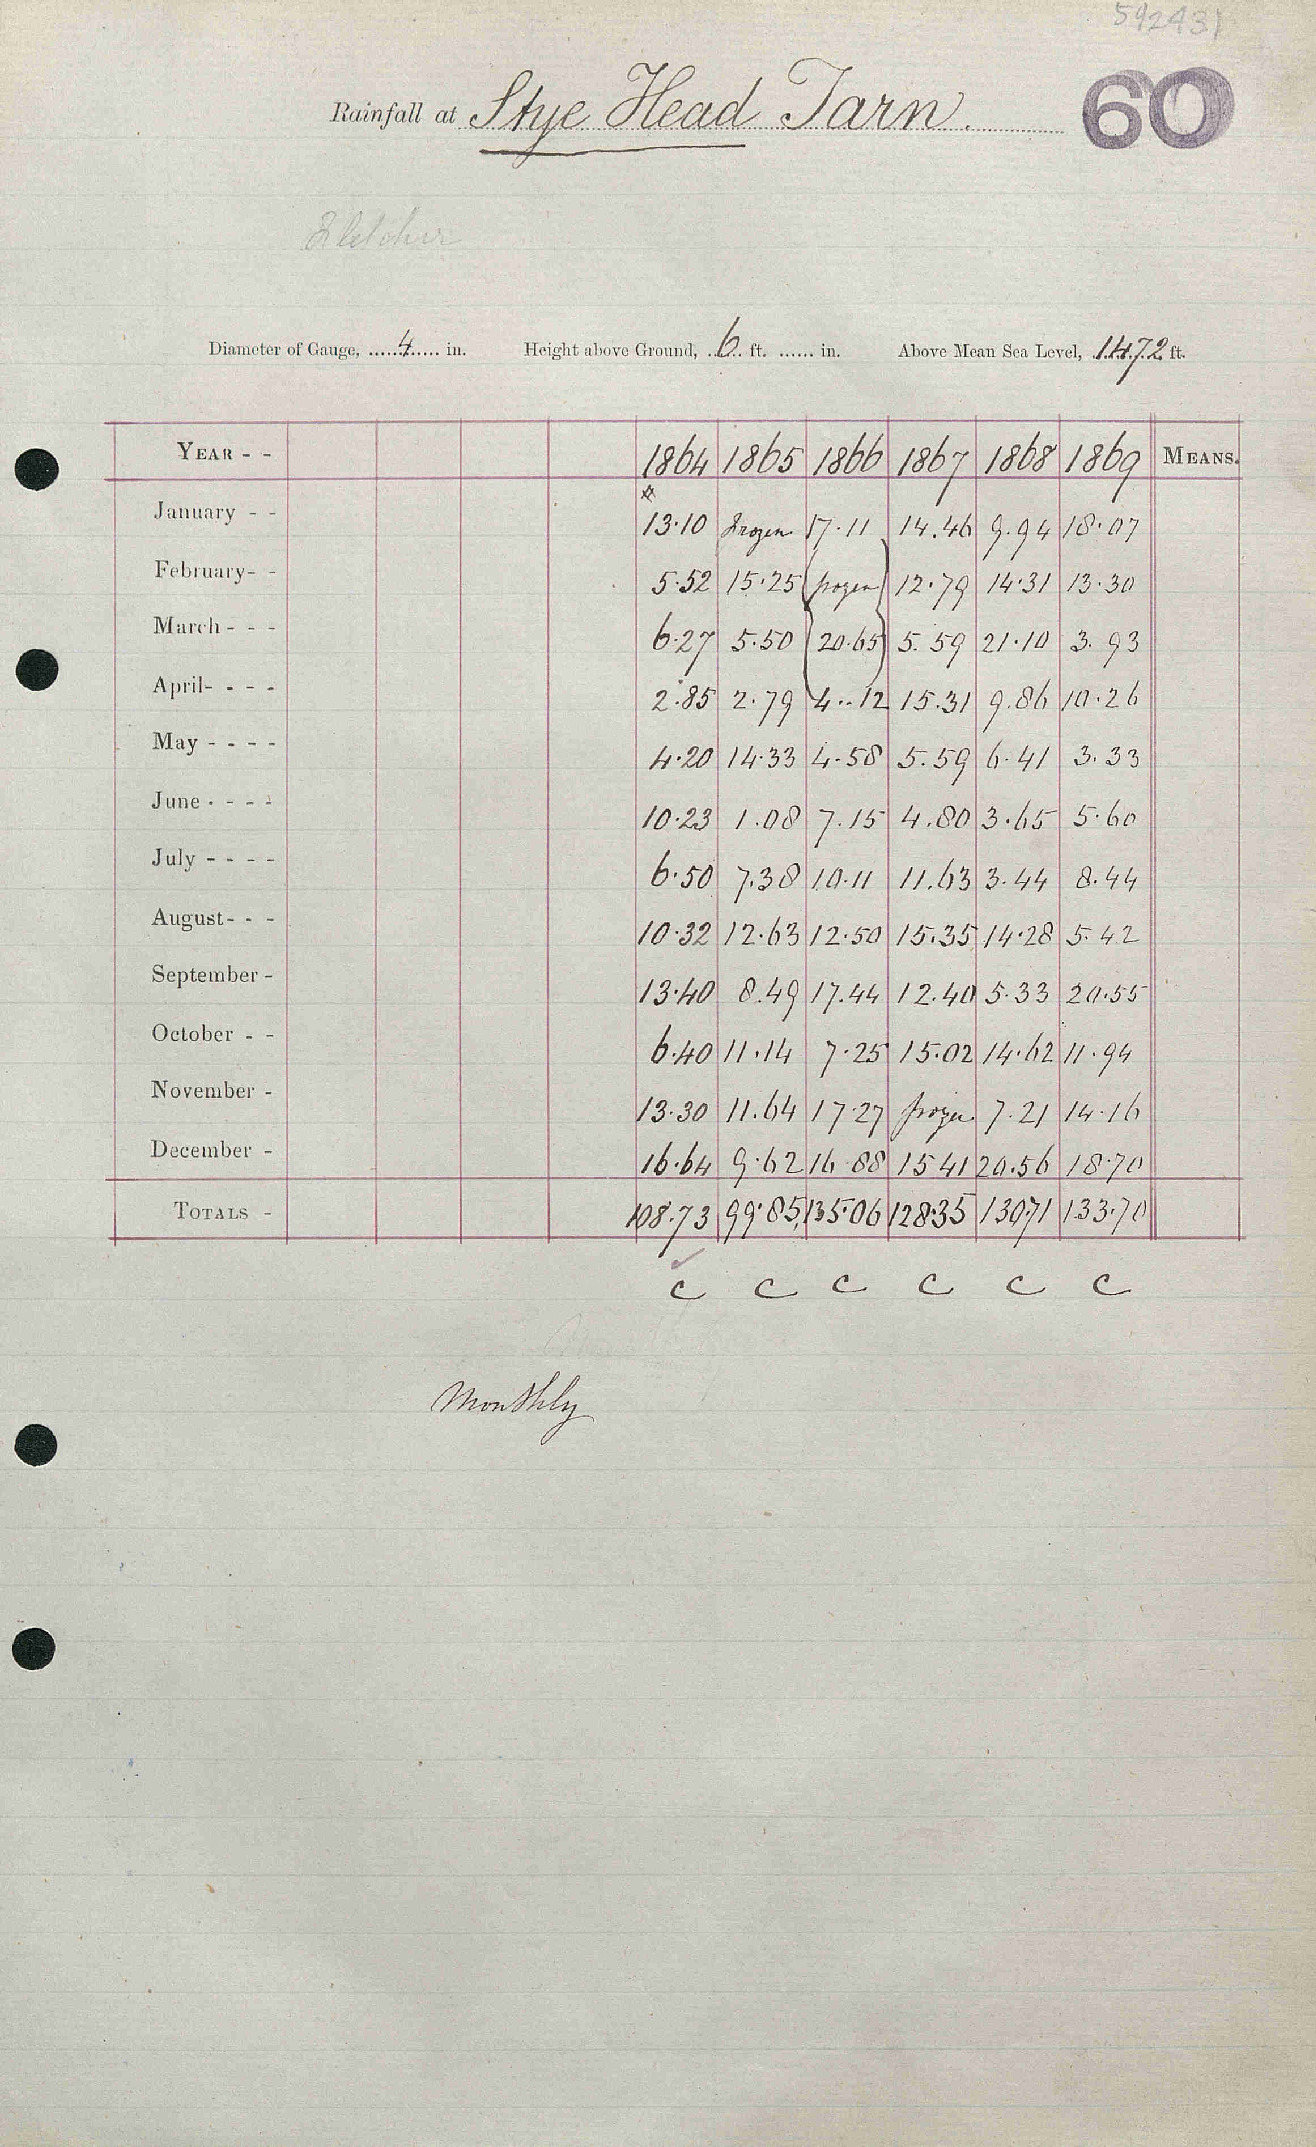 592431
Rainfall at Stye Head Tarn. 60
Fletcher
Diameter of Gauge, 4 in. Height above Ground, 6 ft. in. Above Mean Sea Level, 1472 ft.
YEAR - - 1864 1865 1866 1867 1868 1869 MEANS.
January - - 13.10 frozen 17.11 14.46 9.94 18.07
February - - 5.52 15.25 frozen 12.79 14.31 13.30
March - - - 6.27 5.50 20.65 5.59 21.10 3.93
April - - - - 2.85 2.79 4.12 15.31 9.86 10.26
May - - - - 4.20 14.33 4.58 5.59 6.41 3.33
June - - - - 10.23 1.08 7.15 4.80 3.65 5.60
July - - - - 6.50 7.38 10.11 11.63 3.44 8.44
August - - - 10.32 12.63 12.50 15.35 14.28 5.42
September - 13.40 8.49 17.44 12.40 5.33 20.55
October - - 6.40 11.14 7.25 15.02 14.62 11.94
November - 13.30 11.64 17.27 frozen 7.21 14.16
December - 16.64 9.62 16.88 15.41 20.56 18.70
TOTALS - 108.73 99.85 135.06 128.35 130.71 133.70
c c c c c c
Monthly